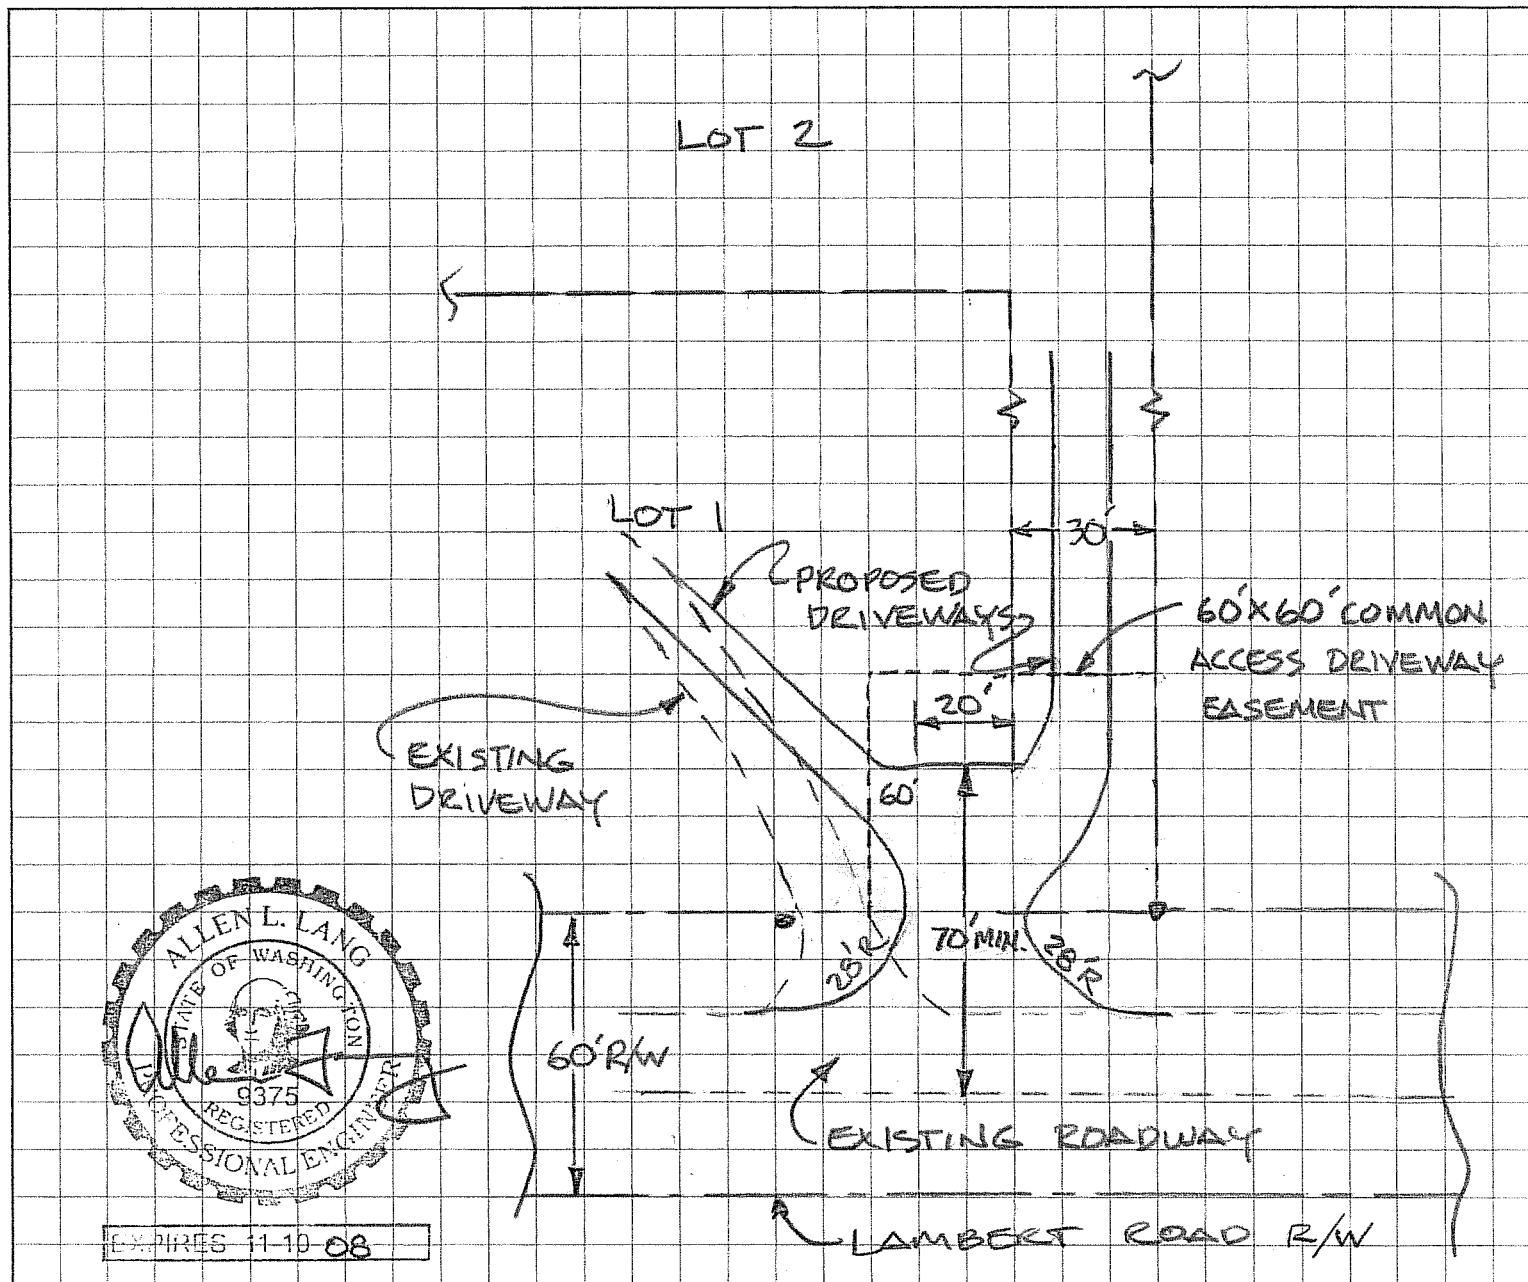 LOT 2
LOT 1
30'
PROPOSED
DRIVEWAYS
60'X60' COMMON
ACCESS DRIVEWAY
EASEMENT
20'
EXISTING
DRIVEWAY
60'
70' MIN.
28'R
28'R
60' R/W
EXISTING ROADWAY
LAMBERT ROAD R/W
ALLEN L. LANG
STATE OF WASHINGTON
9375
REGISTERED
PROFESSIONAL ENGINEER
EXPIRES 11-10-08